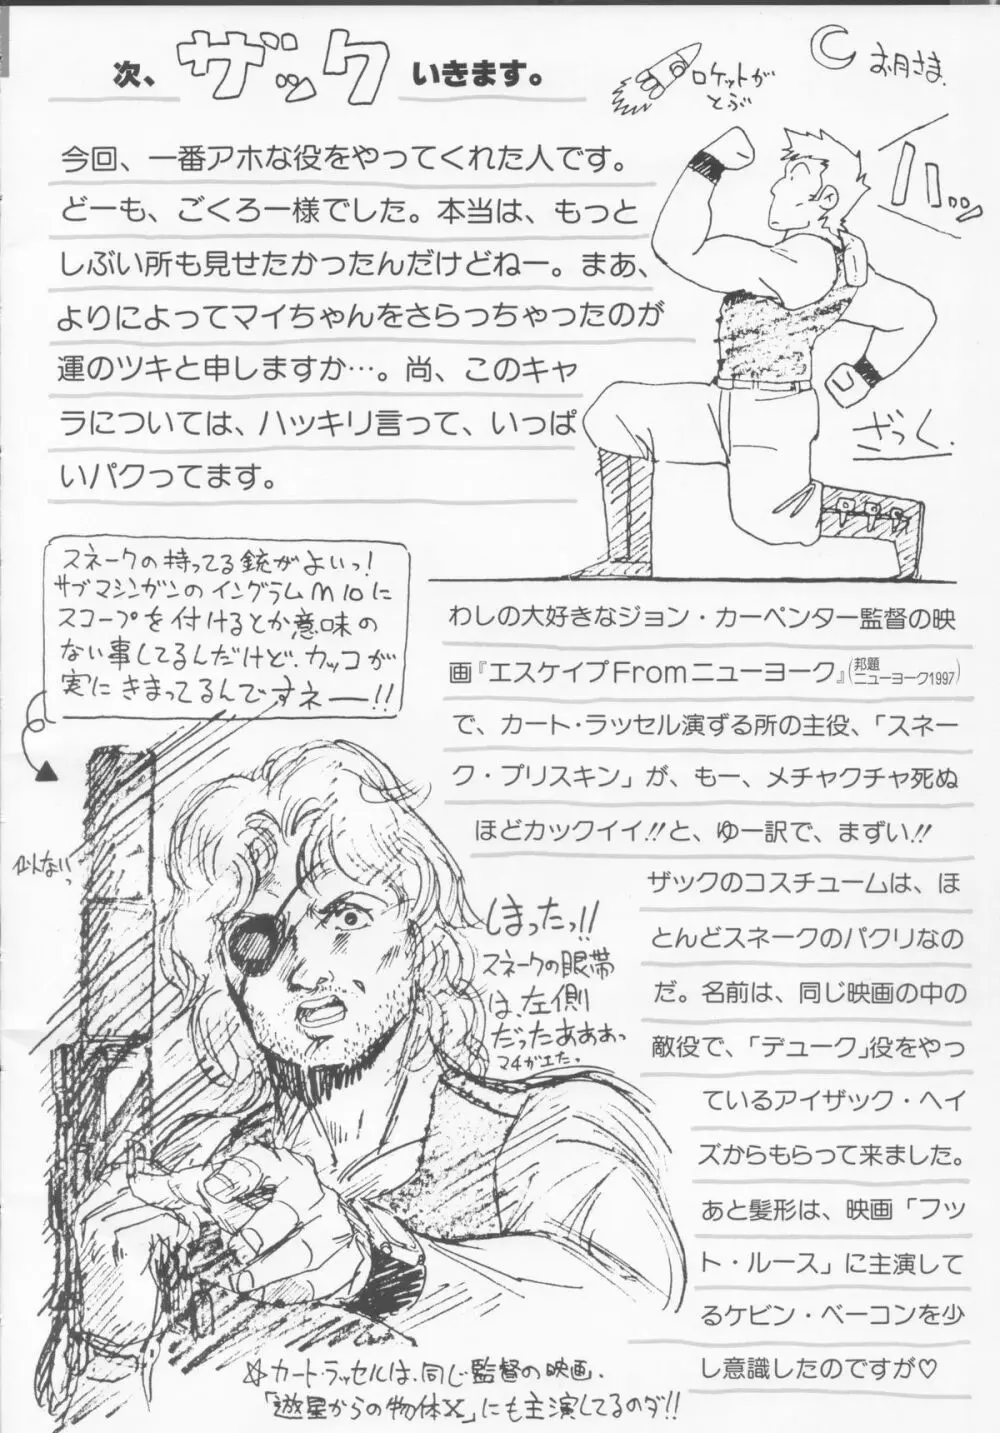 次、ザックいきます。
ロケットが
とぶ
お月さま
今回、一番アホな役をやってくれた人です。
どーも、ごくろー様でした。本当は、もっと
しぶい所も見せたかったんだけどねー。まあ、
よりによってマイちゃんをさらっちゃったのが
運のツキと申しますか…。尚、このキャ
ラについては、ハッキリ言って、いっぱ
いパクってます。
ハッ
ざっく.
スネークの持ってる銃がよいっ!
サブマシンガンのイングラムM10に
スコープを付けるとか意味の
ない事してるんだけど、カッコが
実にきまってるんですネー!!
わしの大好きなジョン・カーペンター監督の映
画『エスケイプFromニューヨーク』(邦題 ニューヨーク1997)
で、カート・ラッセル演ずる所の主役、「スネー
ク・プリスキン」が、もー、メチャクチャ死ぬ
ほどカックイイ!!と、ゆー訳で、まずい!!
ザックのコスチュームは、ほ
とんどスネークのパクリなの
だ。名前は、同じ映画の中の
敵役で、「デューク」役をやっ
ているアイザック・ヘイ
ズからもらって来ました。
あと髪形は、映画「フッ
ト・ルース」に主演して
るケビン・ベーコンを少
し意識したのですが♡
似んないっ
しまったっ!!
スネークの眼帯
は、左側
だったあぁぁっ
マチガエた。
☆カート・ラッセルは、同じ監督の映画、
「遊星からの物体X」にも主演してるのダ!!